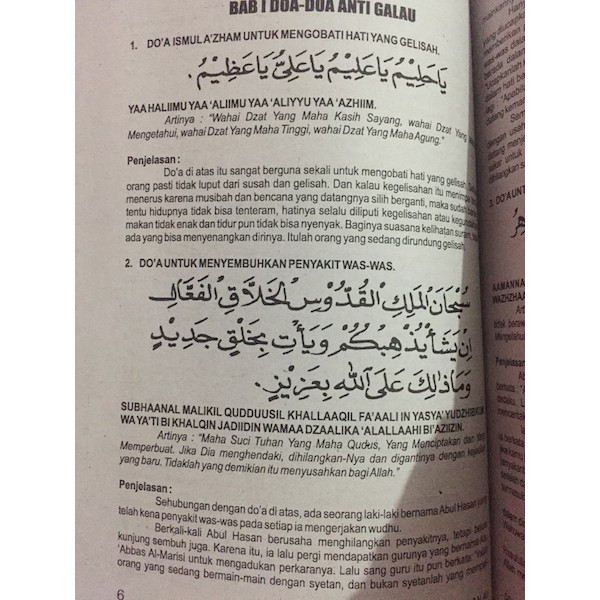 BAB I DOA-DOA ANTI GALAU
1. DO'A ISMUL A'ZHAM UNTUK MENGOBATI HATI YANG GELISAH.
يَا حَلِيْمُ يَا عَلِيْمُ يَا عَلِيُّ يَا عَظِيْمُ.
YAA HALIIMU YAA 'ALIIMU YAA 'ALIYYU YAA 'AZHIIM.
Artinya : "Wahai Dzat Yang Maha Kasih Sayang, wahai Dzat Yang
Mengetahui, wahai Dzat Yang Maha Tinggi, wahai Dzat Yang Maha Agung."
Penjelasan :
Do'a di atas itu sangat berguna sekali untuk mengobati hati yang gelisah.
orang pasti tidak luput dari susah dan gelisah. Dan kalau kegelisahan itu
menerus karena musibah dan bencana yang datangnya silih berganti, maka sudah
tentu hidupnya tidak bisa tenteram, hatinya selalu diliputi kegelisahan atau
makan tidak enak dan tidur pun tidak bisa nyenyak. Baginya suasana kelihatan suram,
ada yang bisa menyenangkan dirinya. Itulah orang yang sedang dirundung gelisah.
2. DO'A UNTUK MENYEMBUHKAN PENYAKIT WAS-WAS.
سُبْحَانَ الْمَلِكِ الْقُدُّوْسِ الْخَلَّاقِ الْفَعَّالِ
اِنْ يَشَأْ يُذْهِبْكُمْ وَيَأْتِ بِخَلْقٍ جَدِيْدٍ
وَمَا ذٰلِكَ عَلَى اللّٰهِ بِعَزِيْزٍ.
SUBHAANAL MALIKIL QUDDUUSIL KHALLAAQIL FA'AALI IN YASYA' YUDZHIBKUM
WA YA'TI BI KHALQIN JADIIDIN WAMAA DZAALIKA 'ALALLAAHI BI'AZIIZIN.
Artinya : "Maha Suci Tuhan Yang Maha Qudus, Yang Menciptakan dan
Memperbuat. Jika Dia menghendaki, dihilangkan-Nya dan digantinya dengan
yang baru. Tidaklah yang demikian itu menyusahkan bagi Allah."
Penjelasan :
Sehubungan dengan do'a di atas, ada seorang laki-laki bernama Abul Hasan
telah kena penyakit was-was pada setiap ia mengerjakan wudhu.
Berkali-kali Abul Hasan berusaha menghilangkan penyakitnya, tetapi
kunjung sembuh juga. Karena itu, ia lalu pergi mendapatkan gurunya yang bernama
'Abbas Al-Marisi untuk mengadukan perkaranya. Lalu sang guru itu pun berkata:
orang yang sedang bermain-main dengan syetan, dan bukan syetanlah yang
6
3. DO'A UNTUK
AAMANNA
Artinya
Penjelasan